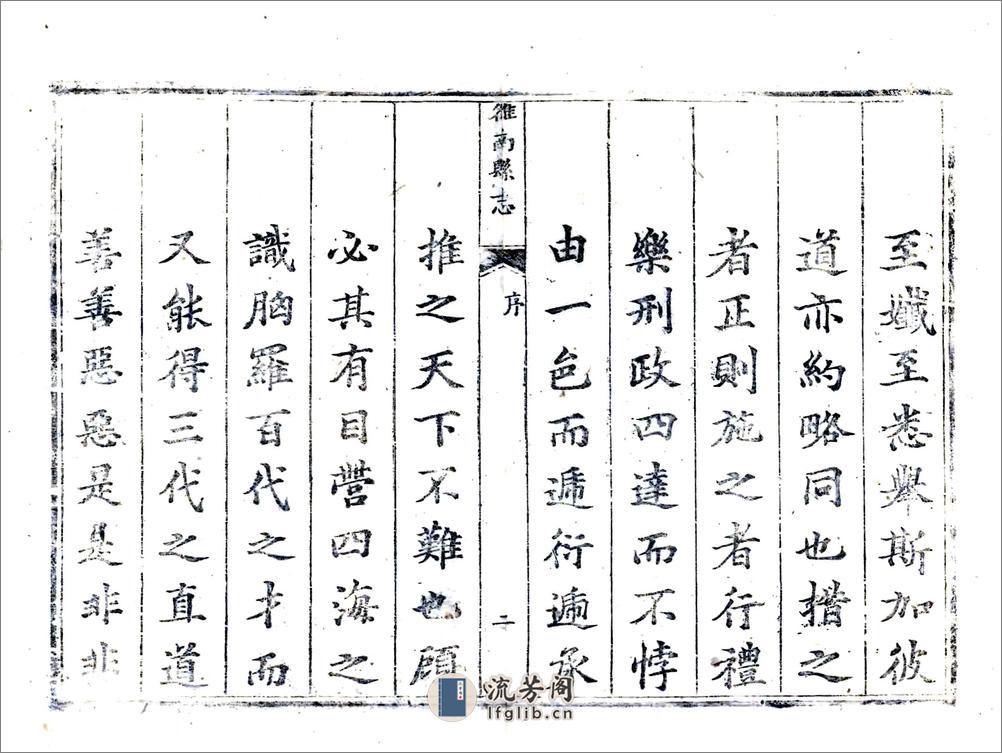 至孅至悉舉斯加彼
道亦約略同也措之
者正則施之者行禮
樂刑政四達而不悖
由一邑而遞衍遞承
雒南縣志
序
二
推之天下不難也顧
必其有目營四海之
識胸羅百代之才而
又能得三代之直道
善善惡惡是是非非
流芳阁
lfglib.cn